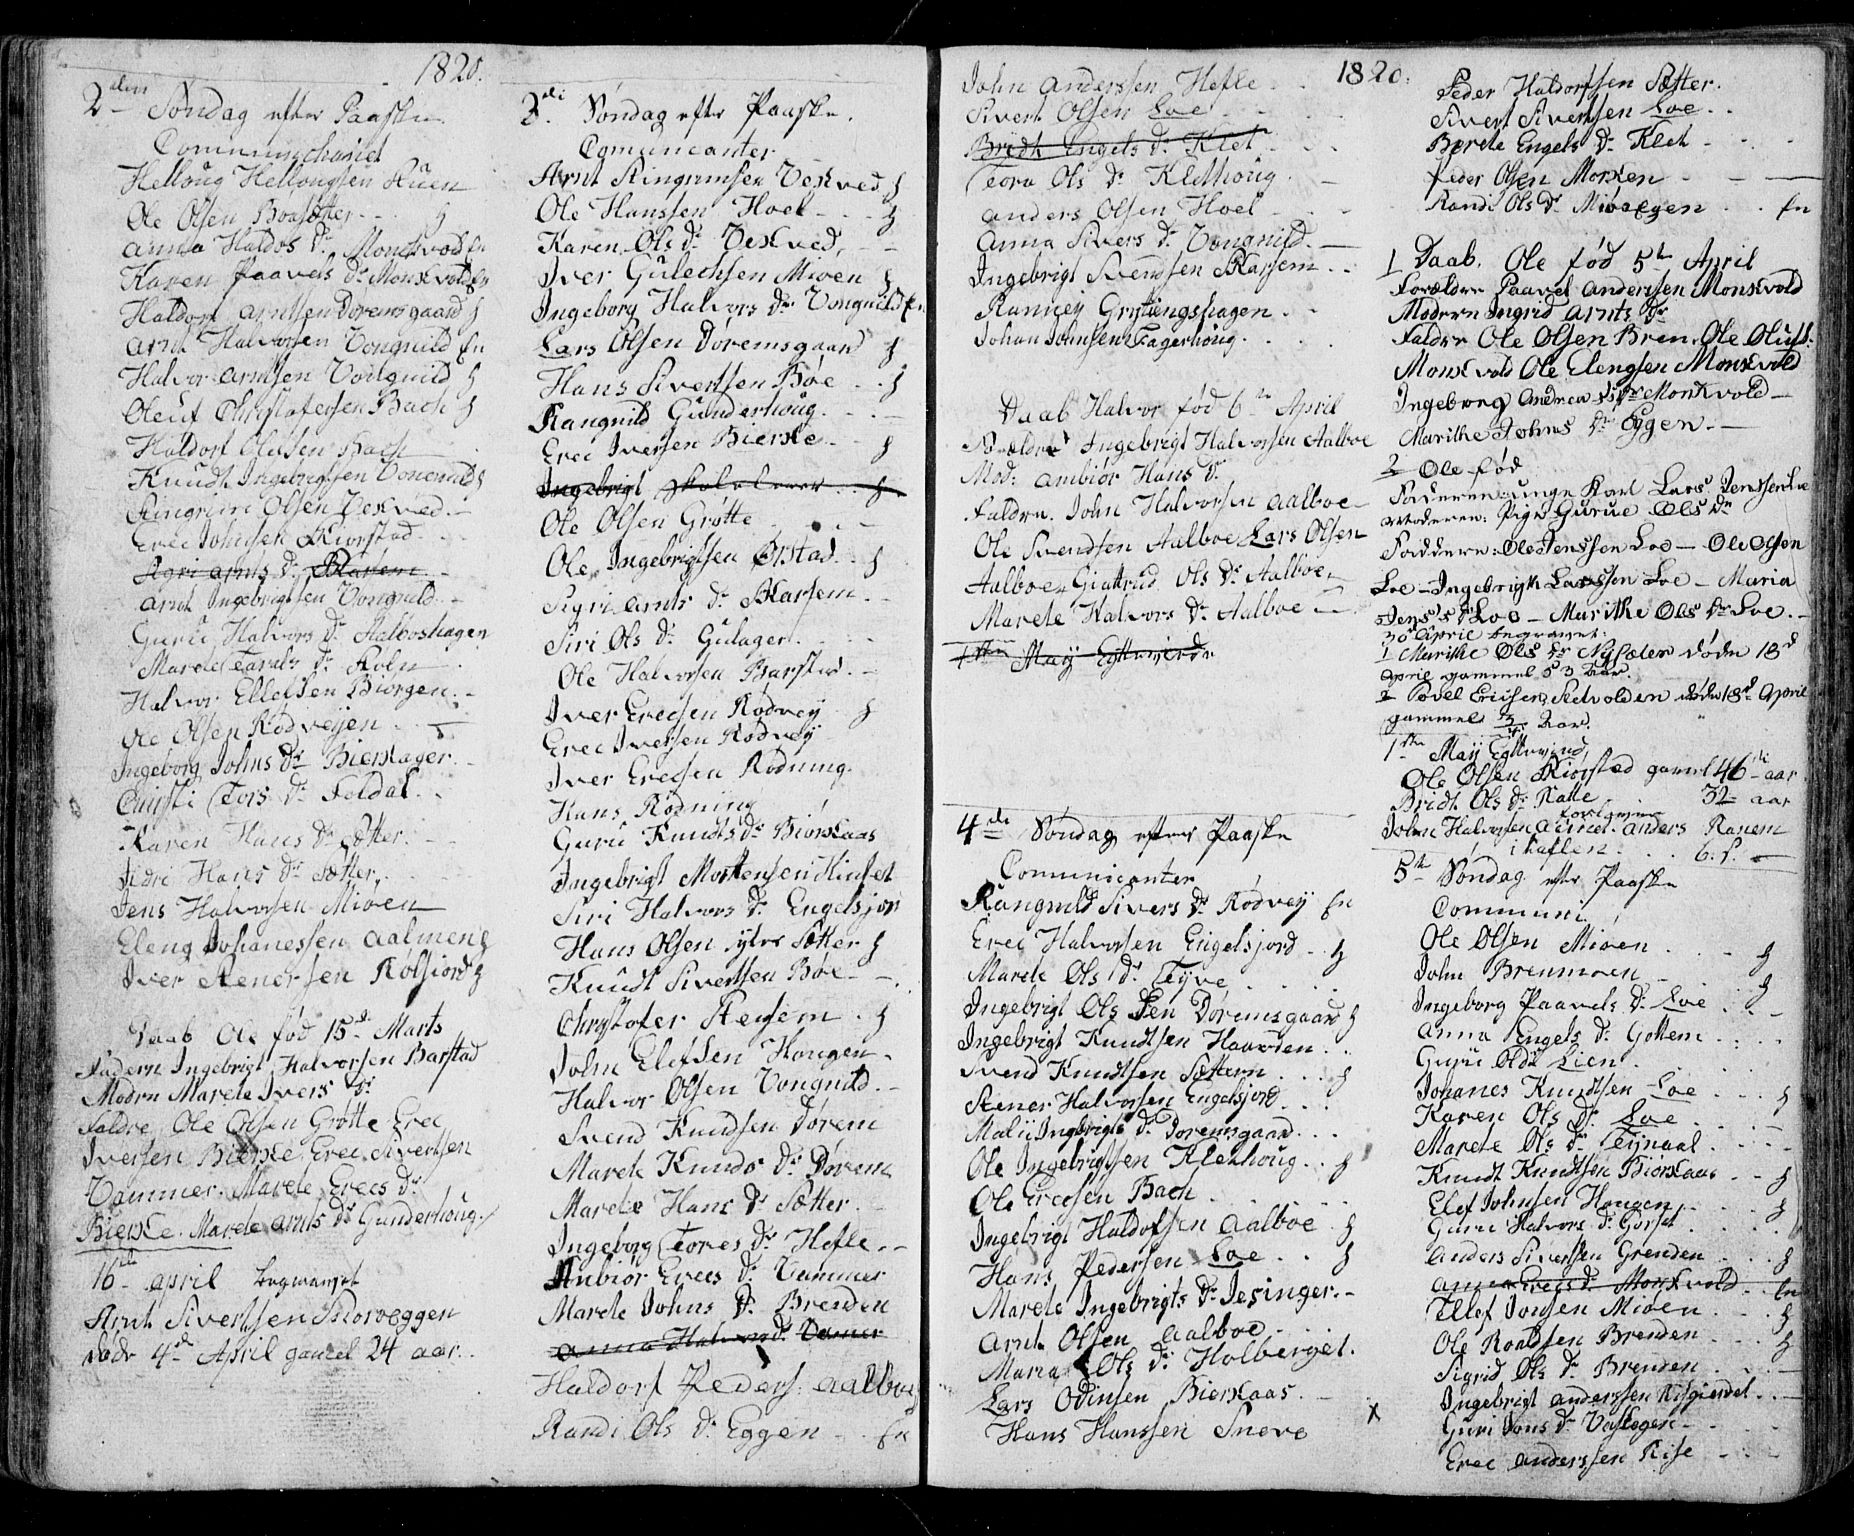 1820.
2den Søndag efter Paaske
Communicheriet
Helloug Hellougsen Huen
Ole Olsen Boasætter - - ɟ
Anna Haldos Dr Monskvold En
Karen Paavels Dr Monskvold En
Haldorf Arntsen Doremsgaard ɟ
Arnt Halvorsen Vongnild En
Halvor Arntsen Vongnild ɟ
Oleuf Christofersen Bach ɟ
Haldorf Olufsen Bach
Knudt Ingebrigtsen Vongnild ɟ
Ringrim Olsen Vexved -
Erec Johnsen Kiorstad
Sigri Arnts Dr Skarsem
Arnt Ingebrigtsen Vongnild -
Guru Halvors Dr Aalboshagen
Marete Tarals Dr Holm
Halvor Ellefsen Biørgen -
Ole Olsen Rodveyen -
Ingeborg Johns Dr Bierskager -
Chirsti Tors Dr Foldal - -
Karen Hans Dr Sætter -
Sidri Hans Dr Sætter
Jens Halvorsen Mioen
Eleng Johanessen Aalmen ɟ
Iver Stenersen Rolfsiord ɟ
Daab Ole fød 15de Marts
Fadern Ingebrigt Halvorsen Barstad
Modrn Marete Ivers Dr
Faldre Ole Olsen Grøtte Erec
Iversen Bierke Erec Sivertsen
Vammer. Marete Erecs Dr
Bierke. Marete Arnts Dr Gunderhoug
16de April begravet
Arnt Sivertsen Skoroeggen
døde 4de April gamel 24 aar.
3di Søndag efter Paaske.
Comunicanter
Arnt Ringrimsen Vexved ɟ
Ole Hanssen Hoel - - - ɟ
Karen Ols Dr Vexved -
Iver Gulechsen Mioen ɟ
Ingeborg Halvors Dr Vongnild En
Lars Olsen Doremsgaard ɟ
Hans Sivertsen Bøe - - ɟ
Rangnild Gunderhoug -
Erec Iversen Bierke - ɟ
Ingebrigt Skolelærer - ɟ
Ole Olsen Grøtte
Ole Ingebrigtsen Ørstad - ɟ
Sigri Arnts Dr Skarsem -
Siri Ols Dr Gulager -
Ole Halvorsen Barstad -
Iver Erecsen Rodvey ɟ
Erec Iversen Rodvey
Iver Erecsen Rodning
Hans Rødning
Guru Knudts Dr Biørkaas
Ingebrigt Mortensen Hindset
Siri Halvors Dr Engelsjor
Hans Olsen yter Sætter ɟ
Knudt Sivertsen Bøe - -
Chrystofer Stensem - ɟ
John Elefsen Hougen -
Halvor Olsen Vongnild -
Svend Knudsen Dorem
Marete Knuds Dr Dorem
Marete Hans Dr Sætter -
Ingeborg Tores Dr Hefle -
Anbiør Erecs Dr Vammer
Marete Johns Dr Brenden
Anna Halvors Dr Vamer
Haldorf Peders: Aalboe ɟ
Randi Ols Dr Eggen - - En
1820.
John Anderssen Hefle - -
Sivert Olsen Loe -
Bridt Engels Dr Klet -
Tora Ols Dr Kletthoug -
Anders Olsen Hoel -
Anna Sivers Dr Vongnild -
Ingebrigt Svendsen Skarsem - -
Ranney Grytingshagen - -
Johan Johnsen Fagerhoug -
Daab Halvor fød 6te April
Forældre Ingebrigt Halvorsen Aalboe
Mod: Ambior Hans Dr
Faldrn. John Halvorsen Aalboe
Ole Svendsen Aalboe Lars Olsen
Aalboe Giattrud Ols Dr Aalboe
Marete Halvors Dr Aalboe -
1ste May Egtteviede
4de Søndag efter Paaske
Comunicanter
Rangnild Sivers Dr Rodvey En
Erec Halvorsen Engelsjord - ɟ
Marete Ols Dr Tyve -
Ingebrigt Ols Sen Doremsgaard ɟ
Ingebrigt Knudtsen Haarden - -
Svend Knudtsen Sættern - - - ɟ
Stener Halvorsen Engelsjord
Malii Ingebrigts Dr Doremsgaard - -
Ole Ingebrigtsen Kletthoug - - ɟ
Ole Erecsen Bach -
Ingebrigt Haldorsen Aalboe - ɟ
Hans Pedersen Loe - - ɟ
Marete Ingebrigts Dr Jesinger - -
Arnt Olsen Aalboe -
Maria Ols Dr Holberget.
Lars Odinsen Bierkaas - -
Hans Hanssen Sneve x
Peder Haldorssen Sætter.
Sivert Sivertsen Loe - -
Berete Engels Dr Klet -
Peder Olsen Morken -
Randi Ols Dr Mioeggen - - En
1 Daab. Ole fød 5te April
Forældre Paavel Anderssen Monskvold
Modern Ingrid Arnts Dr
Faldre Ole Olsen Bren. Ole Olufs:
Monskvold Ole Elengsen Monskvold
Ingeborg Andrea Dr Monskvold -
Marithe Johns Dr Eggen -
2 Ole fød
Faderen: unge Karl Lars Jenssen Loe
Moderen: Pige Gurue Ols Dr
Faddere: Ole Jenssen Loe - Ole Olsen
Loe - Ingebrigt Larssen Loe - Maria
Jens's Dr Loe - Marithe Ols Dr Loe. -
30 April begravet:
1 Marithe Ols Dr Nysæter døde 18de
April gammel 53 Aar.
2 Povel Ericsen Sletvolden døde 18de April
gammel 3/4 Aar.
1ste May Egttevied
Ole Olsen Kiorstad gamel 46 aar
Bridt Ols Dr Kalle 32 aar
forlovere
John Halvorsen Almet. Anders Ranem
i kallen - - 6. s. -
5te Søndag efter Paaske
Communi
Ole Olsen Mioen - - ɟ
John Brenmoen - ɟ
Ingeborg Paavels Dr Loe - -
Anna Engels Dr Gottem - -
Guru Ols Dr Lien -
Johanes Knudtsen Loe - - ɟ
Karen Ols Dr Loe -
Marete Ols Dr Teynaal - -
Knudt Knudtsen Biørkaas - - ɟ
Elef Johnsen Hougen - - ɟ
Guru Halvors Dr Gorset -
Anders Siverssen Grenden - - ɟ
Anna Erecs Dr Monskvold - En
Ellef Jonsen Mioen - - ɟ
Ole Roaldsen Brenden - - ɟ
Sigrid Ols Dr Brenden - -
Ingebrigt Anderssen Risgierdet - -
Guri Jons Dr Vaslegen - -
Erec Anderssen Rise - - -